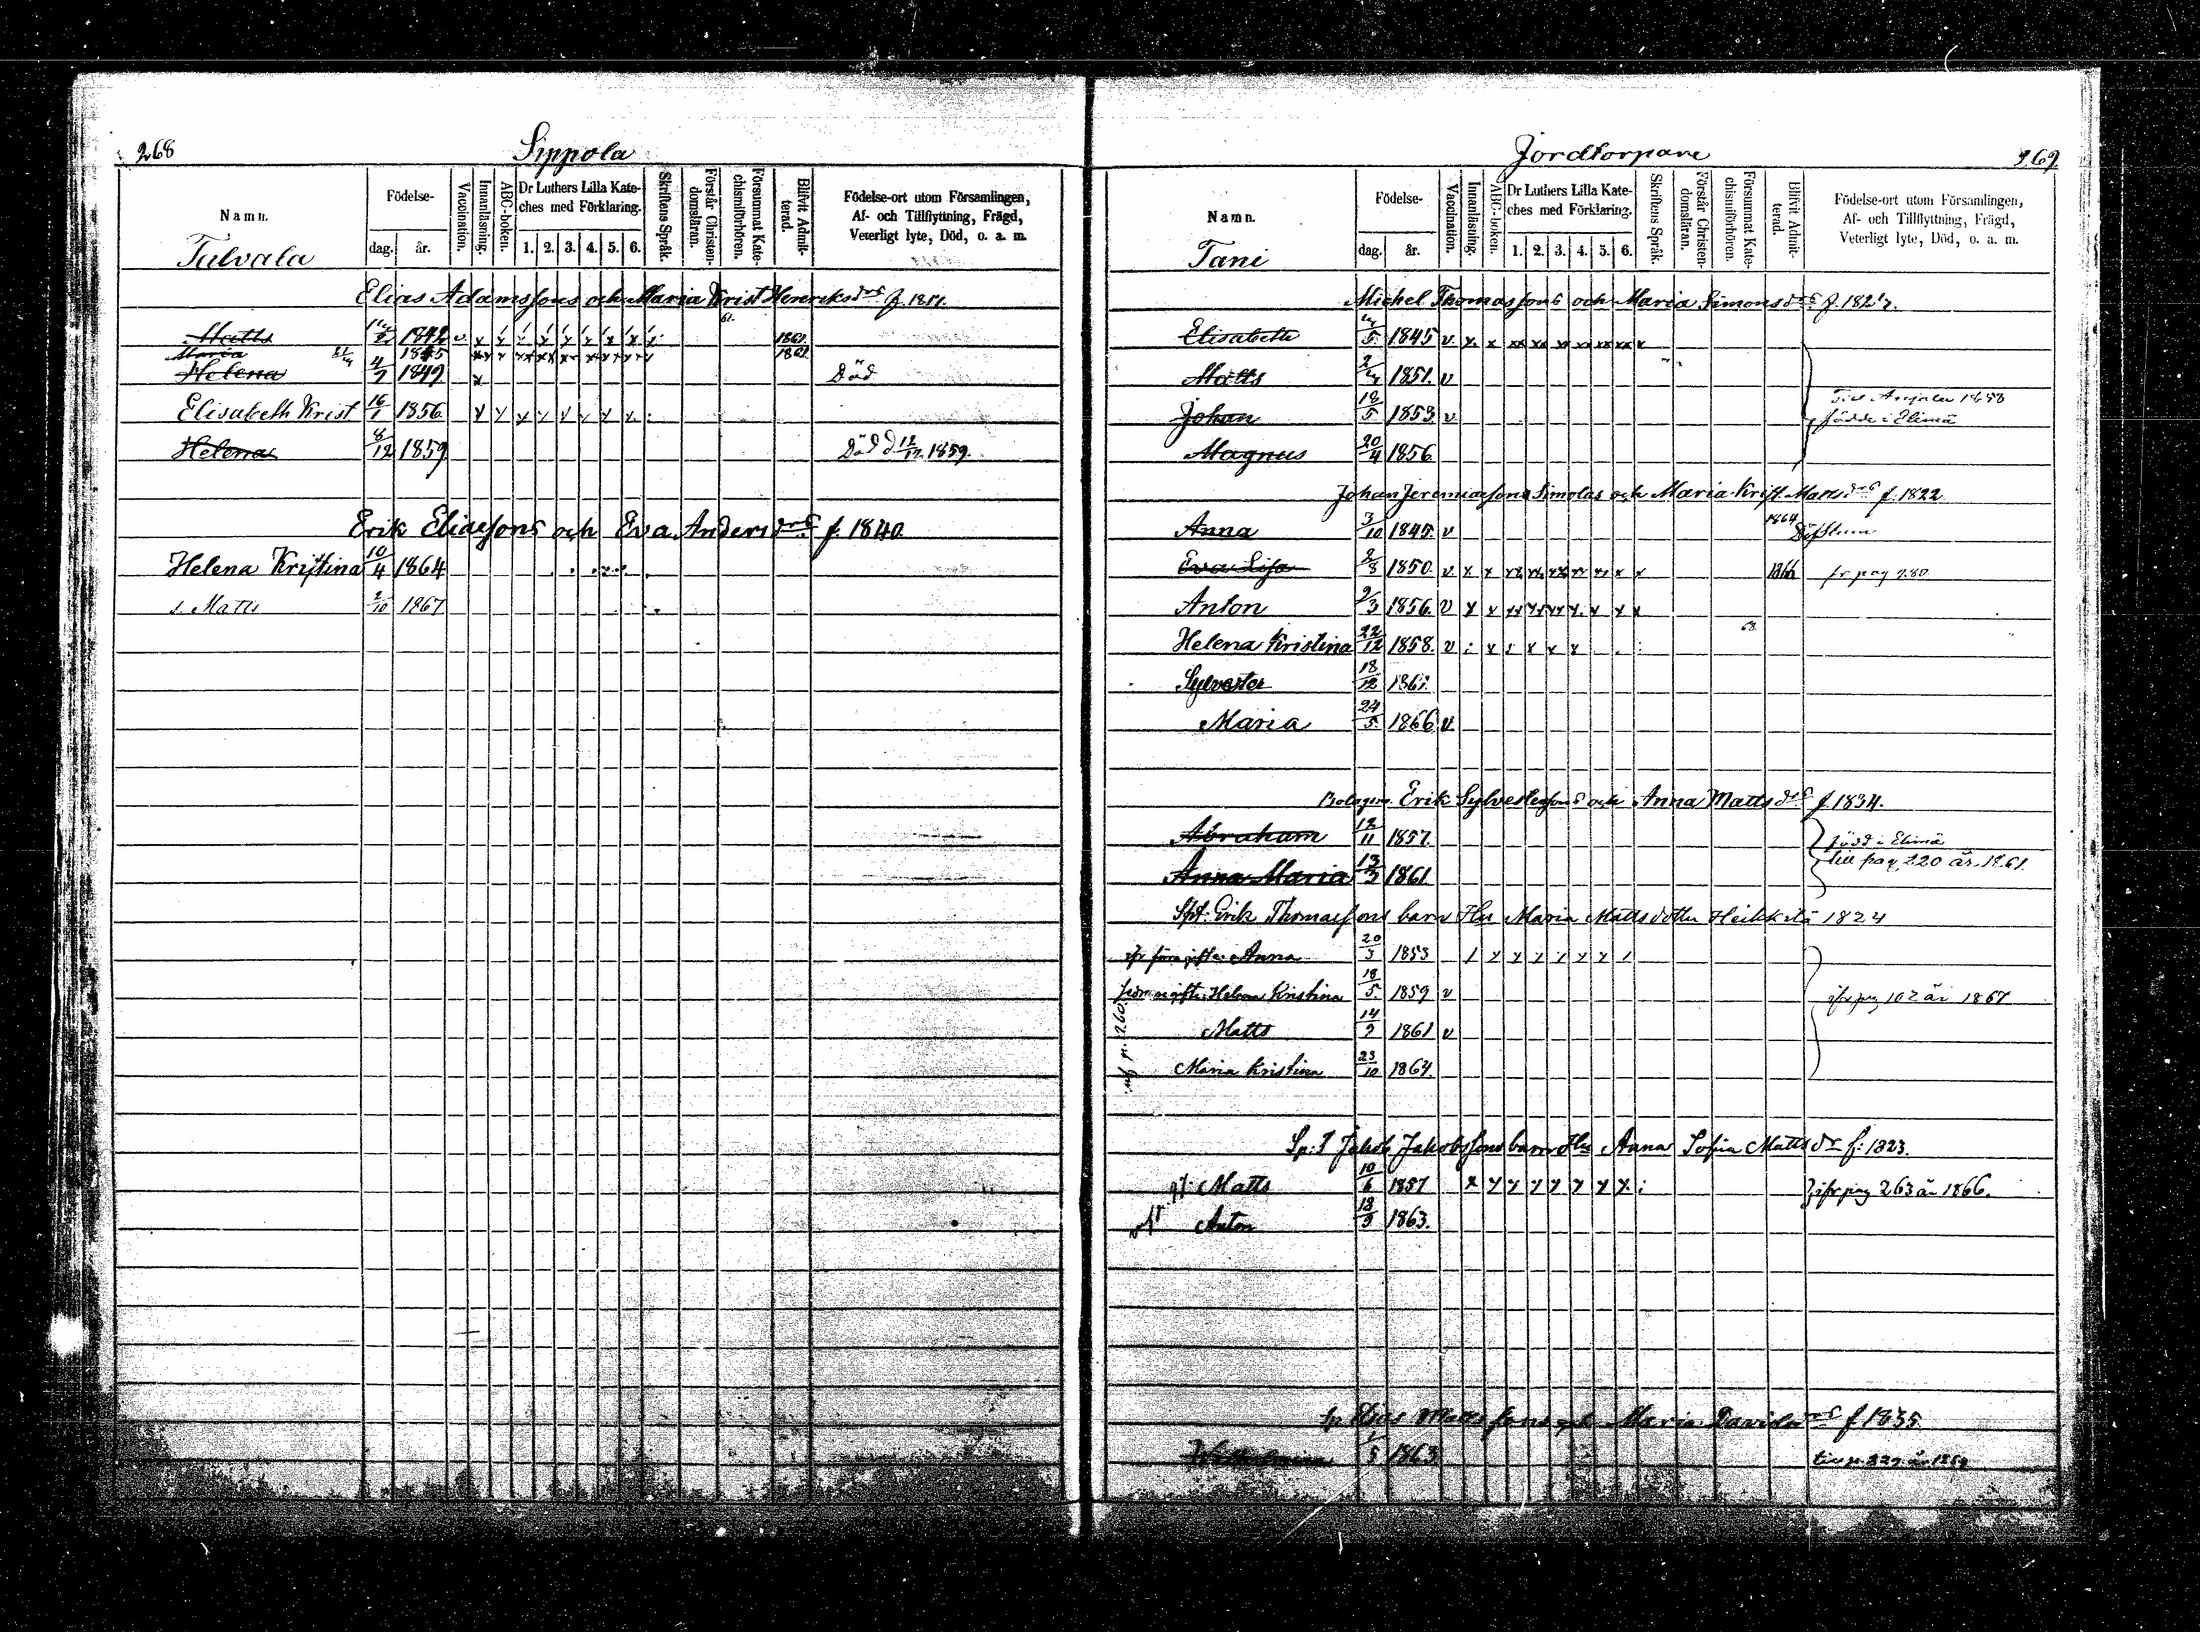 268
Sippola
Namn.
Födelse-
dag.
år.
Vaccination.
Innanläsning.
ABC-boken.
Dr Luthers Lilla Kateches med Förklaring.
1. 2. 3. 4. 5. 6.
Skriftens Språk.
Förstår Christendomsläran.
Försummat Katechismiförhören.
Blifvit Admitterad.
Födelse-ort utom Församlingen,
Af- och Tillflyttning, Frägd,
Veterligt lyte, Död, o. a. m.
Talvala
Elias Adamssons och Maria Krist Henriksdrs f. 1811.
61.
Matts 1842 v 1861
Maria 1845 1861
Helena 4/7 1849 x Död
Elisabeth Krist 16/1 1856
Helena 8/12 1859 Död d 12/12 1859.
Erik Eliassons och Eva Andersdrs f. 1840.
Helena Kristina 10/4 1864
s. Matts 2/10 1867
Jordtorpare
269
Namn.
Födelse-
dag.
år.
Vaccination.
Innanläsning.
ABC-boken.
Dr Luthers Lilla Kateches med Förklaring.
1. 2. 3. 4. 5. 6.
Skriftens Språk.
Förstår Christendomsläran.
Försummat Katechismiförhören.
Blifvit Admitterad.
Födelse-ort utom Församlingen,
Af- och Tillflyttning, Frägd,
Veterligt lyte, Död, o. a. m.
Tani
Michel Thomassons och Maria Simonsdrs
Elisabeth 1845 v x x xx xx xx xx xx xx x
Matts 1851. v
Till Anjala 1858
Johan 18/5 1853 v födde i Elimä
Magnus 20/4 1856
Johan Jeremiassons Simolas och Maria Krist Mattsdrs f. 1822
Anna 3/10 1845. v 1864 Döfstum
Eva Lisa 1850. v x x xx xx xx xx x x 1866 fr pag 280
Anton 9/3 1856. v x x xx xx xx x x x x
68.
Helena Kristina 22/12 1858. v
Sylvester 18/12 1861.
Maria 24/5 1866 v
Bolagsm. Erik Sylvesterssons och Anna Mattsdrs f. 1834.
Abraham 12/11 1857. född i Elimä
till pag 220 år 1861.
Anna Maria 13/3 1861
Spt: Erik Thomassons barn Hu Maria Mattsdotter Heikkilä 1824
Anna 20/3 1853
Helena Kristina 18/5 1859 v ifr pag 102 år 1867
Matts 14/9 1861 v
Maria Kristina 23/10 1864.
Sp: T Jakob Jakobssons barn Hu Anna Sofia Mattsdr f: 1823.
Matts 10/6 1857 ifr pag 263 år 1866.
Anton 18/9 1863.
Mattssons och Maria Davidsdrs f 1835.
Wilhelmina 1/5 1863